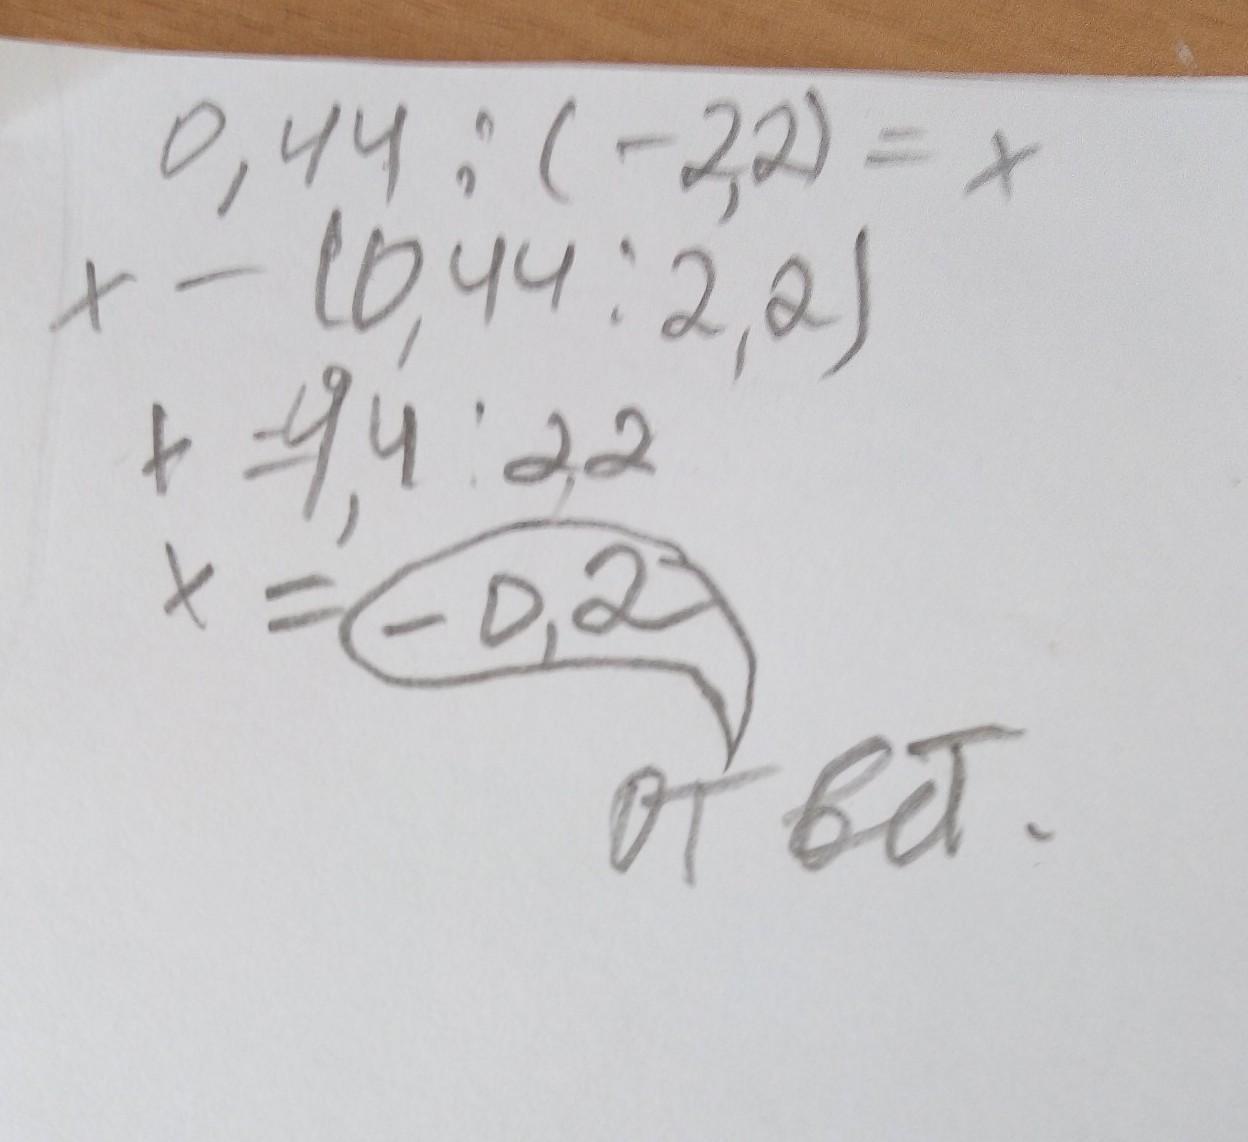 0,44 : (-2,2) = x
x - (0,44 : 2,2)
x = -4,4 : 2,2
x = -0,2
ответ.